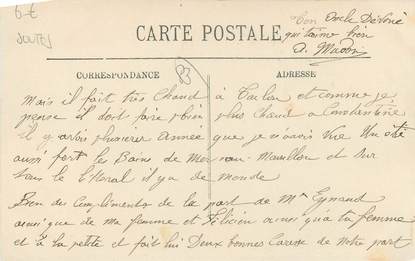 6-€
JOUTES
ton Oncle Dévoué
qui t'aime bien
CARTE POSTALE
CORRESPONDANCE
ADRESSE
83
Mais il fait très Chaud à Toulon et comme je
pense il doit faire bien plus chaud a Constantine
il y avait plusieurs Année que je n'avais Vue Un été
aussi fort les Bains de Mer au Mourillon et sur
tous le littoral il y a de monde
Bien des Compliments de la part de Mr Eymard
ainsi que de ma femme et Félicien ainsi qu'a ta femme
et à la petite et fait lui Deux bonnes Caresse de Notre part